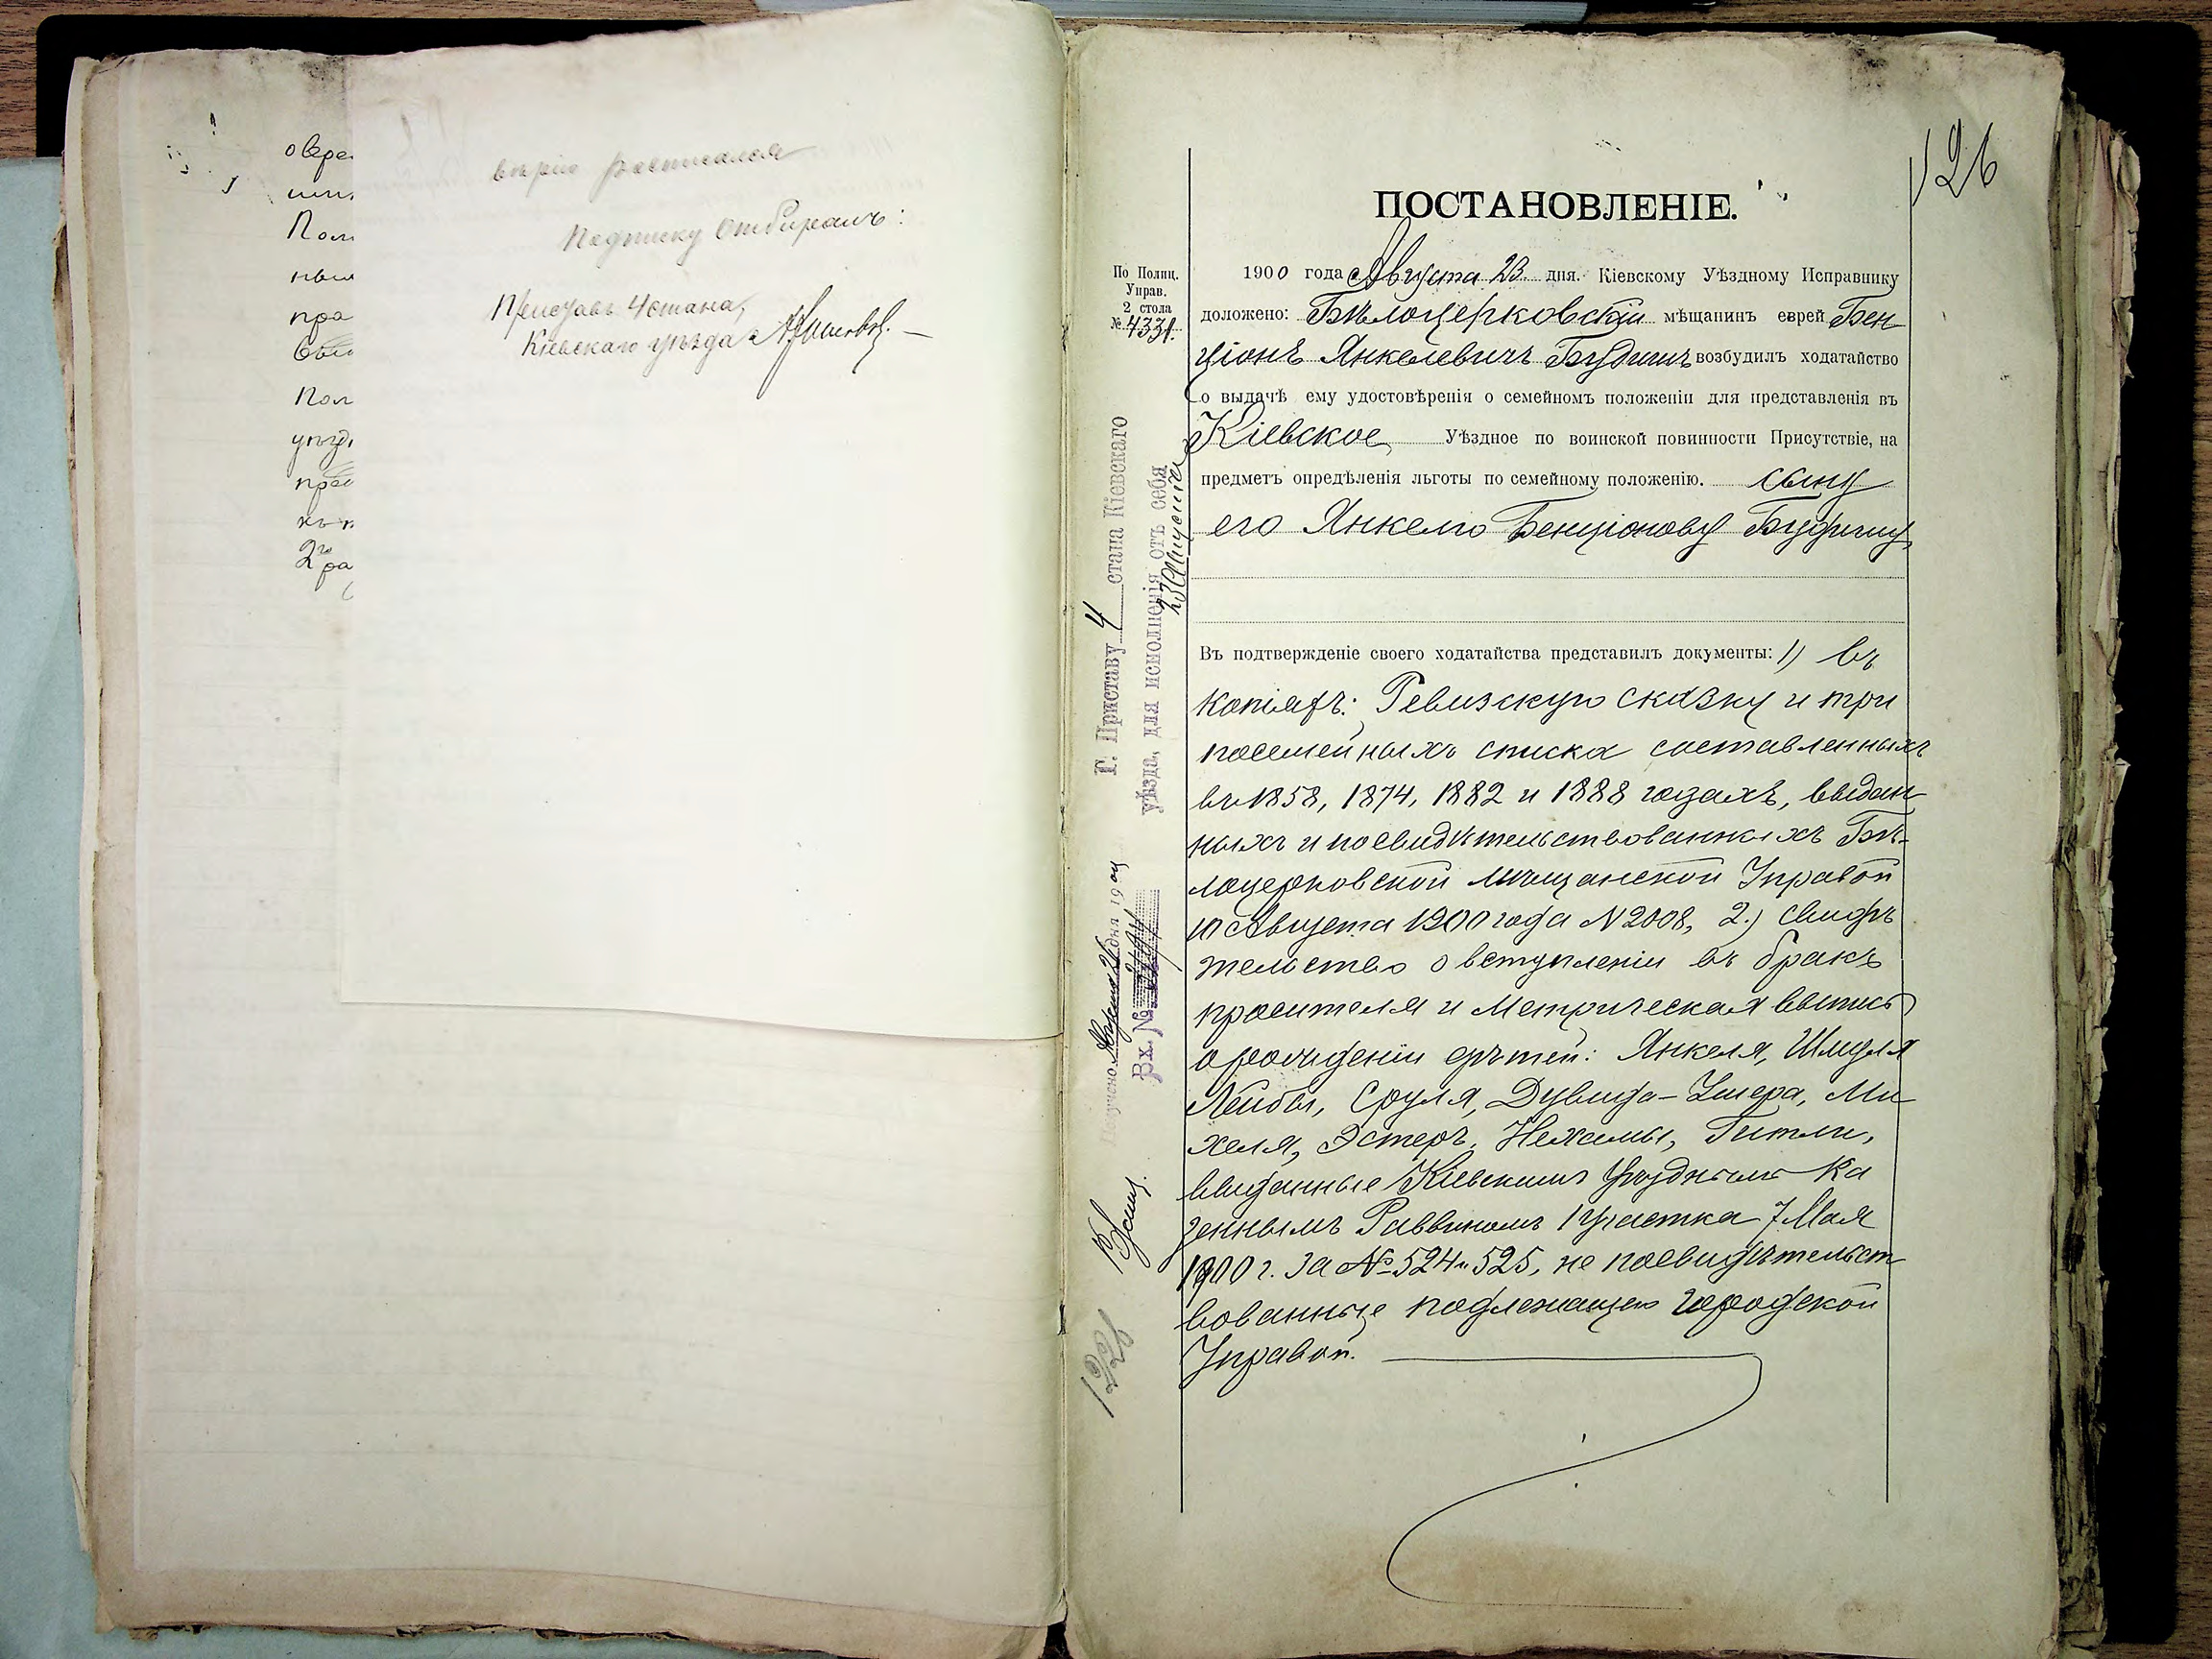 овре
Пол
ныя
пра
Пол
уѣзд
пред
2го ра
вѣрно росписался
Подписку отбиралъ:
Приставъ 4 стана,
Кіевскаго уѣзда
126
ПОСТАНОВЛЕНІЕ.
По Полиц.
Управ.
2 стола
№ 4331.
1900 года Августа 23 дня. Кіевскому Уѣздному Исправнику
доложено: Бѣлоцерковскій мѣщанинъ еврей Бен
ціонъ Янкелевичъ Будичъ возбудилъ ходатайство
о выдачѣ ему удостовѣренія о семейномъ положеніи для представленія въ
Кіевское Уѣздное по воинской повинности Присутствіе, на
предметъ опредѣленія льготы по семейному положенію. сыну
его Янкелю Бенціонову Будичу,
Въ подтвержденіе своего ходатайства представилъ документы: 1) въ
копіяхъ: Ревизскую сказку и три
посемейныхъ списка составленныхъ
въ 1858, 1874, 1882 и 1888 годахъ, выдан
ныхъ и посвидѣтельствованныхъ Бѣ-
лоцерковской мѣщанской Управой
10 Августа 1900 года N 2008, 2.) свидѣ
тельство о вступленіи въ бракъ
просителя и Метрическая выпись
о рожденіи дѣтей: Янкеля, Шмуля
Лейбы, Сруля, Дувида-Ушера, Ми
хеля, Эстеръ, Нехамы, Гитли,
выданные Кіевскимъ Уѣзднымъ Ка
зеннымъ Раввиномъ 1 участка 7 Мая
1900 г. за № 524 и 525, не посвидѣтельст
вованные подлежащею городской
Управой.
Г. Приставу 4 стана Кіевскаго
уѣзда, для исполненія отъ себя
Получено Августа 26 дня 1900
Вх. №